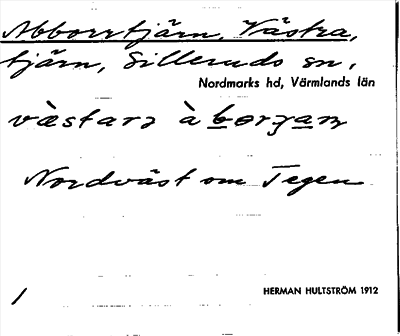 Abborrtjärn, Västra,
tjärn, Silleruds sn,
Nordmarks hd, Värmlands län
västarz à
Nordväst om Tegen
HERMAN HULTSTRÖM 1912
/